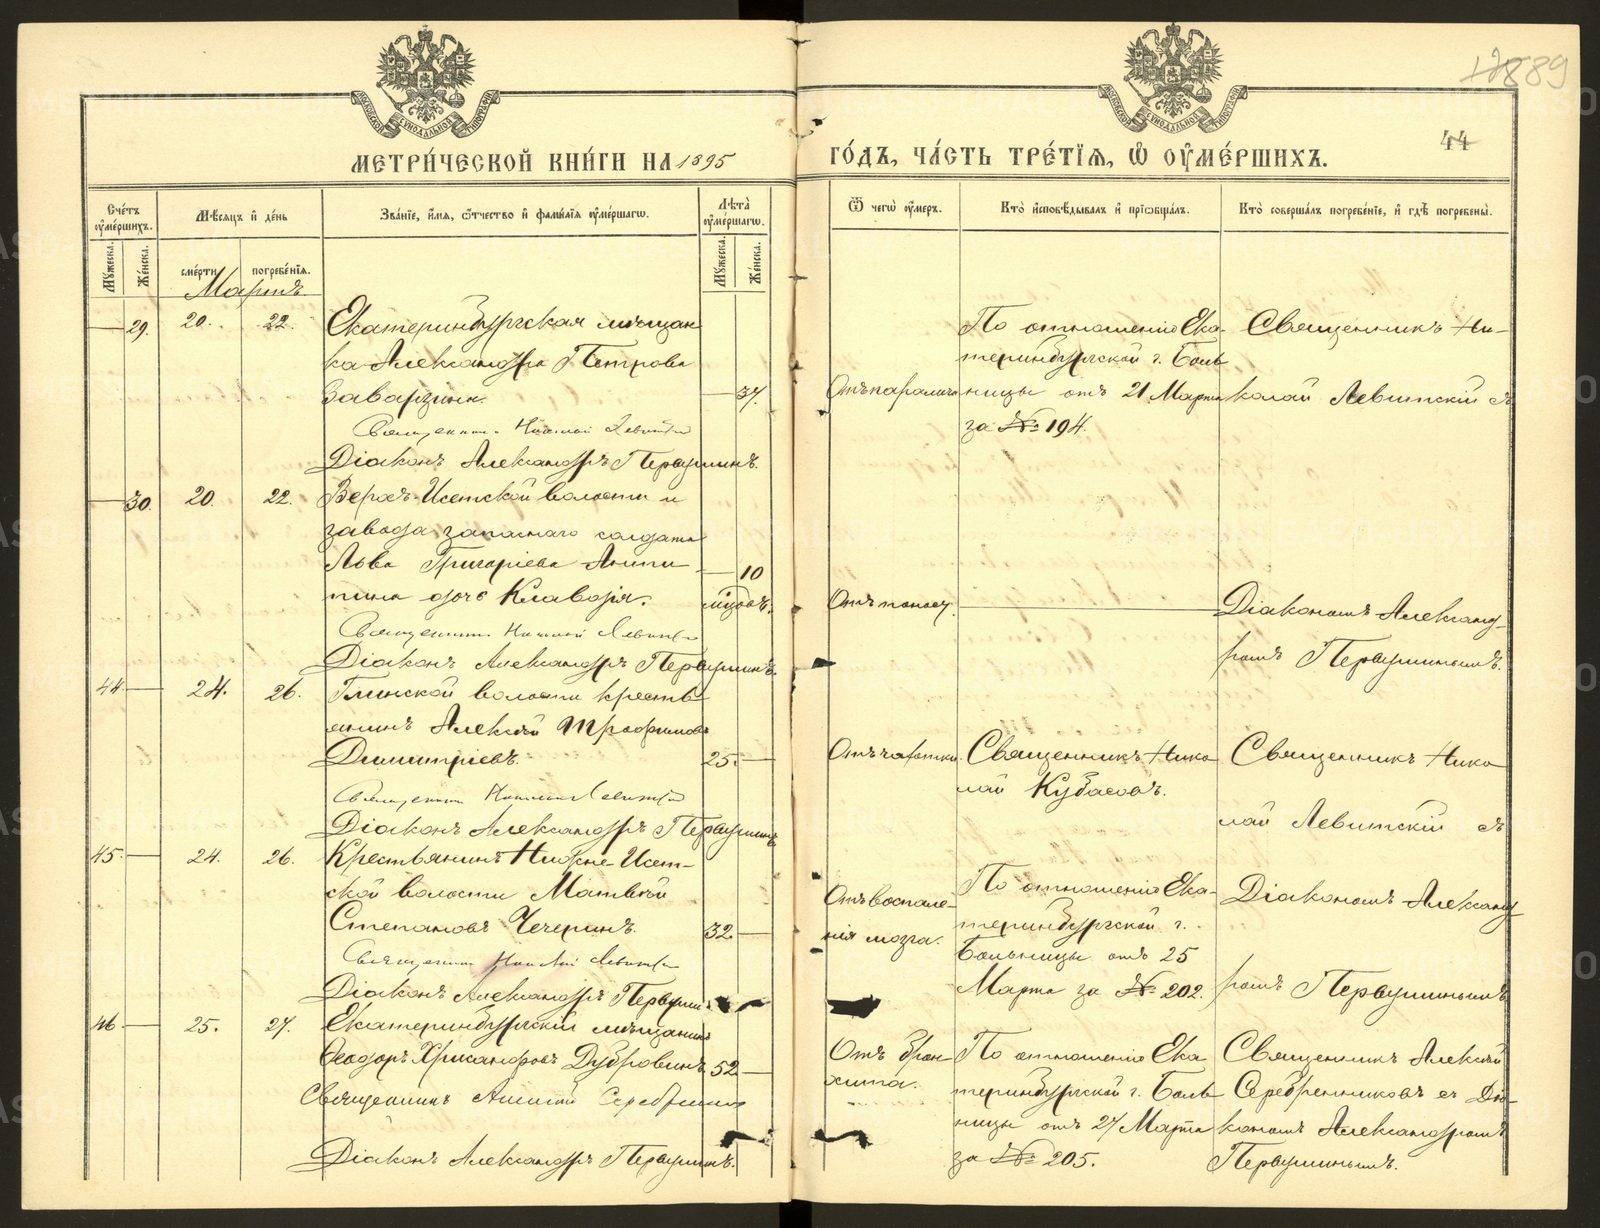 12889
44
МЕТРИ́ЧЕСКОЙ КНИ́ГИ НА 1895
ГО́ДЪ, ЧА́СТЬ ТРЕ́ТІѦ, Ѽ ОУ҆МЕ́РШИХЪ.
Сче́тъ оу҆ме́ршихъ.
Мѣ́сяцъ и҆ де́нь
Зва́нїе, и҆́мя, ѻ҆́тчество и҆ фами́лїя оу҆ме́ршагѡ.
Лѣ́та оу҆ме́ршагѡ.
Ѿ чегѡ̀ оу҆́меръ.
Кто̀ и҆сповѣ́дывалъ и҆ прїѡбща́лъ.
Кто̀ соверша́лъ погребе́нїе, и҆ гдѣ̀ погребены̀.
Мꙋ́жеска.
Же́нска.
сме́рти
погребе́нїя.
Мꙋ́жеска.
Же́нска.
Мартъ.
— 29. 20. 22. Екатеринбургская мѣщан
ка Александра Петрова
Заварзина. — 37.
Священникъ Николай Левитскій
Діаконъ Александръ Первушинъ.
Отъ паралича
По отношенію Ека-
теринбургской г. Боль
ницы отъ 21 Марта
за № 194.
Священникъ Ни-
колай Левитскій съ
— 30. 20. 22. Верхъ-Исетской волости и
завода запаснаго солдата
Льва Григоріева
дочь Клавдія. — 10
Священникъ Николай Левитскій
Діаконъ Александръ Первушинъ.
Отъ поносу. —
Діакономъ Александ-
ромъ Первушинымъ.
44. — 24. 26. Глинской волости кресть
янинъ Алексѣй Трофимовъ
Димитріевъ. 25. —
Священникъ Николай Левитскій
Діаконъ Александръ Первушинъ
Отъ чахотки.
Священникъ Нико
лай Кубасовъ.
Священникъ Нико
лай Левитскій съ
45. — 24. 26. Крестьянинъ Нижне-Исет-
ской волости Матвѣй
Степановъ Чечеринъ. 32. —
Священникъ Николай Левитскій
Діаконъ Александръ Первушинъ
Отъ воспале-
нія мозга.
По отношенію Ека-
теринбургской г.
Больницы отъ 25
Марта за № 202.
Діакономъ Александ
ромъ Первушинымъ
46 — 25. 27. Екатеринбургскій мѣщанинъ
Ѳеодоръ Хрисанфовъ Дубровинъ. 52 —
Священникъ Алексій Серебренниковъ
Діаконъ Александръ Первушинъ.
Отъ брон
хита.
По отношенію Ека
теринбургской г. Боль
ницы отъ 27 Марта
за № 205.
Священникъ Алексѣй
Серебренниковъ съ Діа-
кономъ Александромъ
Первушинымъ.